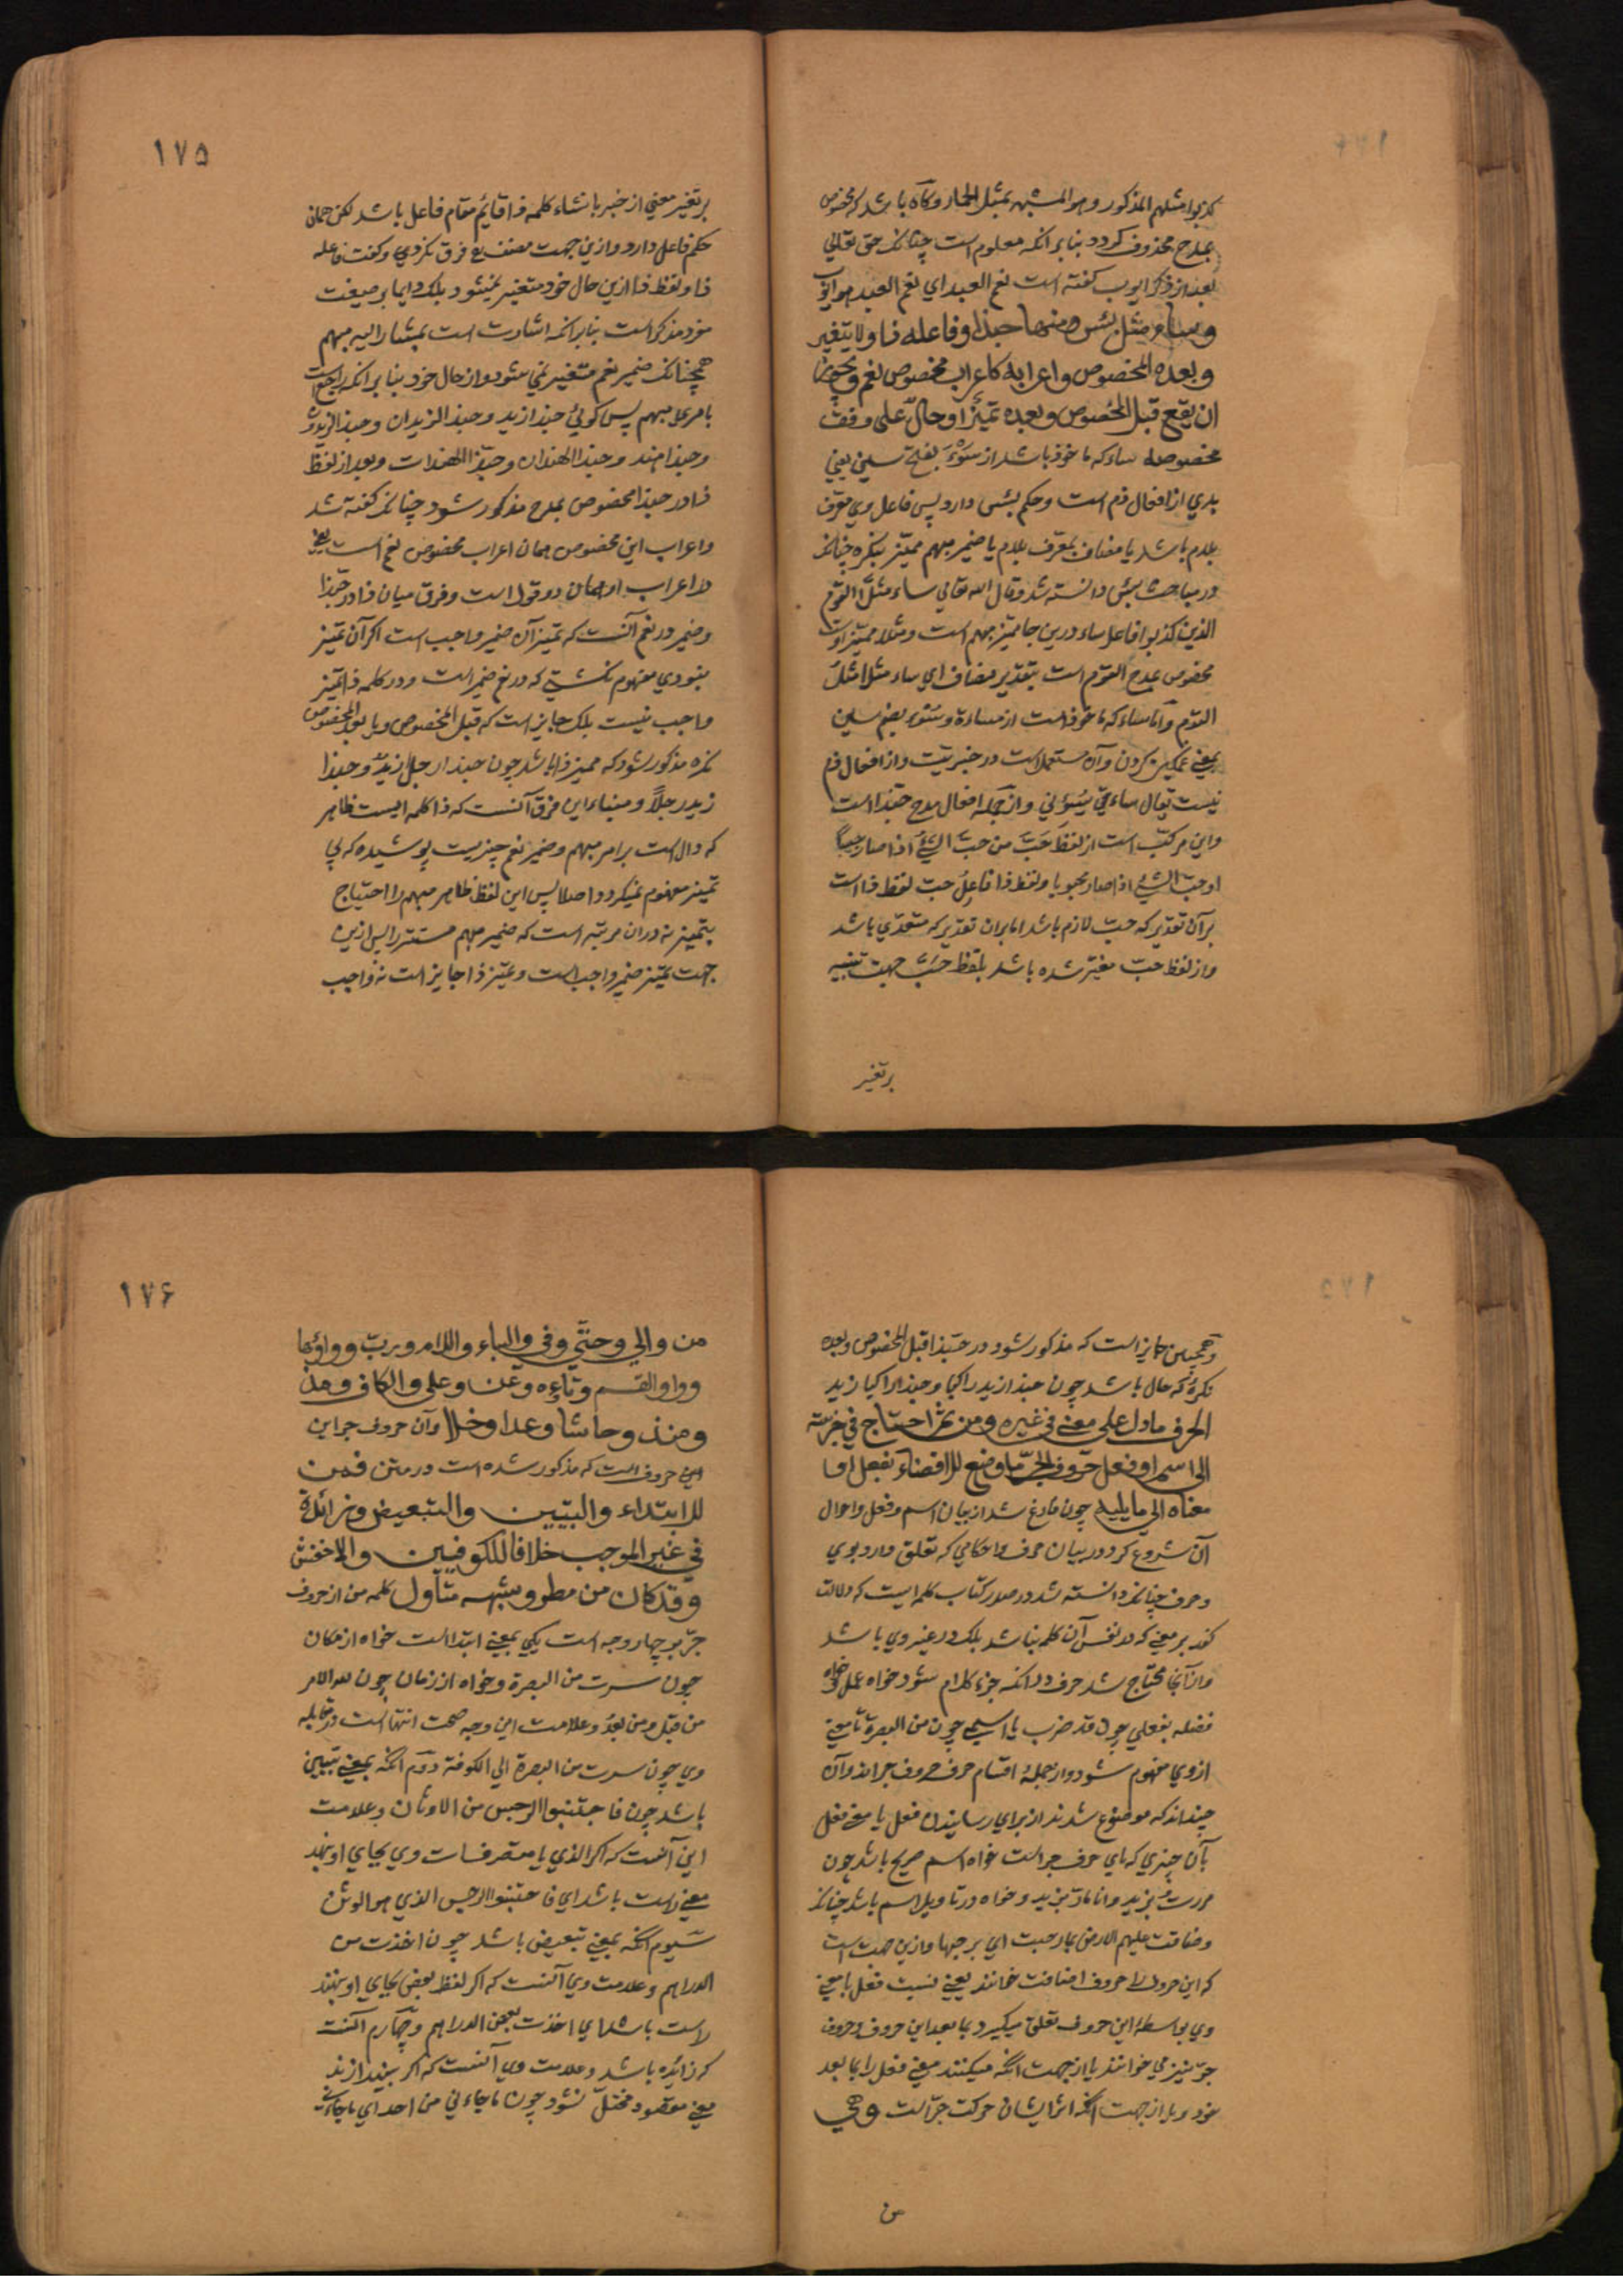 کذبوا مثلهم المذکور وهو المشبه بمثل الحمار وکاه باشد که مخصوص
بمدح محذوف کردد بنابر انکه معلوم است چنانکه حق تعالی
بعد از ذکر ایوب کفته است نعم العبد ای نعم العبد هو ایوب
وساء مثل بئس ومنها حبذا وفاعله ذا ولا یتغیر
وبعده المخصوص واعرابه کاعراب مخصوص نعم ویجوز
ان یقع قبل المخصوص وبعده تمیز او حال علی وفق
مخصوصه ساء که ماخوذ باشد از سَوَءَ بفتح سین یعنی
بدی از افعال ذم است وحکم بئس دارد پس فاعل وی معرف
بلام باشد یا مضاف بمعرف بلام یا ضمیر مبهم ممیز بنکره چنانکه
در مباحث بئس دانسته شد وقال الله تعالی ساء مثلًا القوم
الذین کذبوا فاعل ساء درین جا ممیز مبهم است ومثلا ممیز اوست
مخصوص بمدح القوم است بتقدیر مضاف ای ساء مثلا مثل
القوم واما ساء که ماخوذ است از مساءة وسُوء بضم سین
بمعنی غمکین کردن وآن مستعمل است در خبریت واز افعال ذم
نیست یقال ساءنی یسُوئنی واز جمله افعال مدح حبذا است
واین مرکب است از لفظ حَبَّ من حبّ الشیُٔ اذا صار حبیبًا
او حبّ الشیٔ اذا صار محبوبا ولفظ ذا فاعل حب لفظ ذا است
بر آن تقدیر که حبّ لازم باشد اما بران تقدیر که متعدی باشد
واز لفظ حبّ مغیّر شده باشد بلفظ حَبَّ جهت تنبیه
بر تغیر
١٧٥
بر تغیر معنی از خبر بانشاء کلمه ذا قایم مقام فاعل باشد لکن همان
حکم فاعل دارد وازین جهت مصنف رح فرق نکردی وکفت فاعله
ذا ولفظ ذا ازین حال خود متغیر نمیشود بلکه دایما بر صیغت
مفرد مذکر است بنابر انکه اشارت است بمشار الیه مبهم
همچنانکه ضمیر نعم متغیر نمی شود از حال خود بنابر انکه راجع است
بامری مبهم پس کوئی حبذا زید وحبذا الزیدان وحبذا الزیدون
وحبذا هند وحبذا الهندان وحبذا الهندات وبعد از لفظ
ذا در حبذا مخصوص بمدح مذکور شود چنانکه کفته شد
واعراب این مخصوص همان اعراب مخصوص نعم است یعنی
در اعراب او همان دو قول است وفرق میان ذا در حبذا
وضمیر در نعم آنست که تمیز آن ضمیر واجب است اکر آن تمیز
نبودی مفهوم نکشتی که در نعم ضمیر است ودر کلمه ذا تمیز
واجب نیست بلکه جایز است که قبل المخصوص ویا بعد المخصوص
نکره مذکور شود که ممیز ذا باشد چون حبذا رجلًا زیدٌ وحبذا
زید رجلًا ومبناء این فرق آنست که ذا کلمه ایست ظاهر
که دال است بر امر مبهم وضمیر نعم چیزیست پوشیده که بی
تمیز مفهوم نمیکردد اصلا پس این لفظ ظاهر مبهم را احتیاج
بتمیز نه دران مرتبه است که ضمیر مبهم مستتر را پس ازین
جهت تمیز ضمیر واجب است وتمیز ذا جایز است نه واجب
وهمچنین جایز است که مذکور شود در حبذا قبل المخصوص وبعده
نکرهٔ که حال باشد چون حبذا زید راکبا وحبذا راکبا زید
الحرف مادل علی معنی فی غیره ومن ثم احتاج فی جزئیته
الی اسم او فعل حروف الجرّ ما وضع للافضاء بفعل او ما
معناه الی ما یلیه چون فارغ شد از بیان اسم وفعل واحوال
آن شروع کرد در بیان حرف واحکامی که تعلق دارد بوی
وحرف چنانکه دانسته شد در صدر کتاب کلمه ایست که دلالت
کند بر معنی که در نفس آن کلمه نباشد بلکه در غیر وی باشد
واز آنجا محتاج شد حرف در انکه جزء کلام شود خواه عمل خواه
فضله بفعلی چون قد ضرب یا اسمی چون من البصرة تا معنی
از وی مفهوم شود واز جملهٔ اقسام حرف حروف جراند وآن
چیزاند که موضوع شدند از برای رسانیدن فعل یا معنی فعل
بآن چیزی که بای حرف جر است خواه اسم صریح باشد چون
مررتُ بزید وانا مارّ بزید وخواه در تاویل اسم باشد چنانکه
وضاقت علیهم الارض بما رحبت ای برحبها وازین جهت است
که این حروف را حروف اضافت خوانند یعنی نسبت فعل یا معنی
وی بواسطهٔ این حروف تعلق میکیرد بما بعد این حروف وحروف
جرّ نیز می خوانند یا از جهت انکه میکشند معنی فعل را بما بعد
خود ویا از جهت انکه اثر ایشان حرکت جر است وهی
من
١٧۶
من والی وحتّی وفی والباء واللام وربّ وواوها
وواو القسم وتاءه وعن وعلی والکاف ومذ
ومنذ وحاشا وعدا وخلا وآن حروف جر این
این حروف است که مذکور شده است در متن فمن
للابتداء والتبیین والتبعیض وزائدة
فی غیر الموجب خلافا للکوفیین والاخفش
وقد کان من مطر وشبهه متأول کلمه من از حروف
جرّ بر چهار وجه است یکی بمعنی ابتدا است خواه از مکان
چون سرت من البصرة وخواه از زمان چون لله الامر
من قبل ومن بعدُ وعلامت این وجه صحت انتها است در مقابله
وی چون سرت من البصرة الی الکوفة دوّم انکه بمعنی تبیین
باشد چون فاجتنبوا الرجس من الاوثان وعلامت
این آنست که اکر الذی یا متصرفات وی بجای او نهند
معنی راست باشد ای فاجتنبوا الرجس الذی هو الوثن
سیوم انکه بمعنی تبعیض باشد چون اخذت من
الدراهم وعلامت وی آنست که اکر لفظ بعض بجای او نهند
راست باشد ای اخذت بعض الدراهم وچهارم آنست
که زایده باشد وعلامت وی آنست که اکر بیندازند
معنی مقصود مختلّ نشود چون ماجاءنی من احد ای ماجاءنی